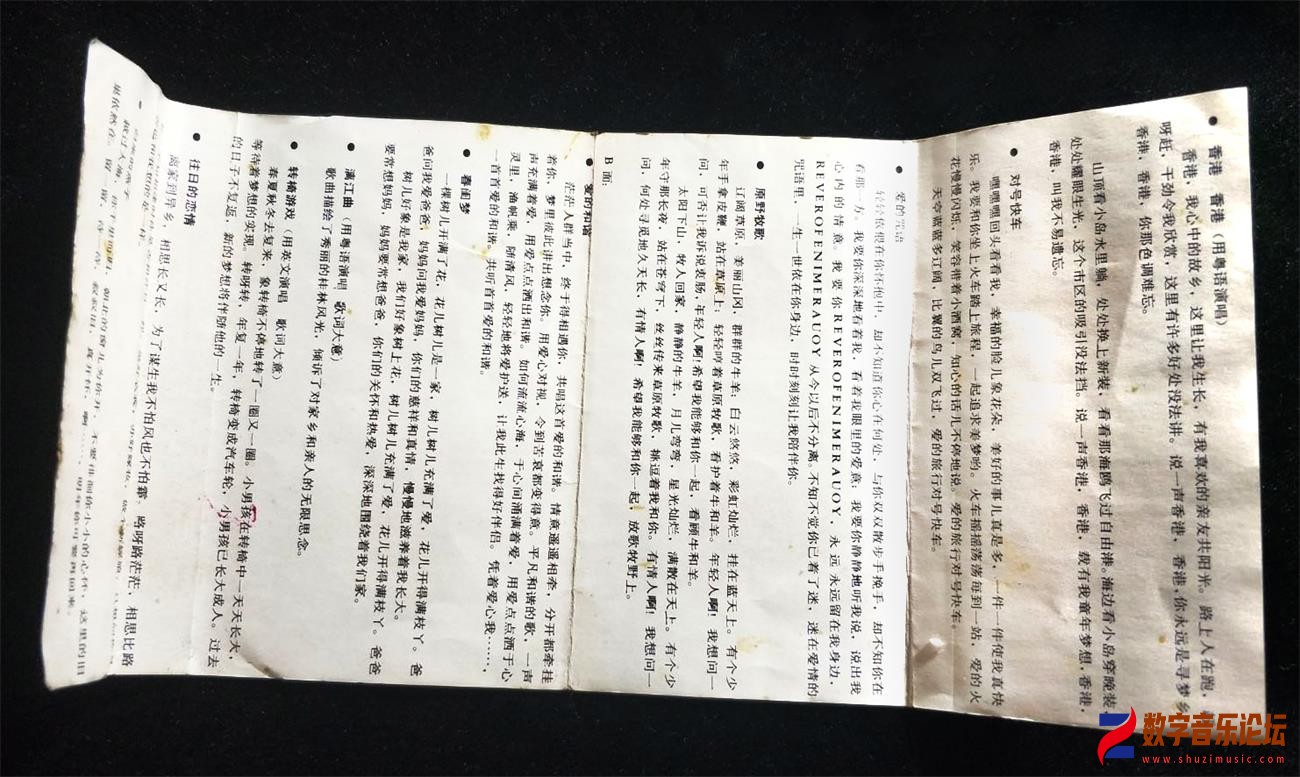 ● 香港 香港（用粤语演唱）
香港，我心中的故乡，这里让我生长，有我喜欢的亲友共阳光。路上人在跑，
呀赶，干劲令我欣赏，这里有许多好处没法讲。说一声香港，香港，你永远是寻梦乡
香港，香港，你那色调难忘。
山顶看小岛水里躺，处处换上新装，看看那海鸥飞过自由港。海边看小岛穿晚装，
处处耀眼生光，这个市区的吸引没法挡。说一声香港，香港，载有我童年梦想，香港，
香港，叫我不易遗忘。
● 对号快车
嘿嘿嘿回头看看我，幸福的脸儿象花朵，美好的事儿真是多，一件一件使我真快
乐。我要和你坐上火车踏上旅程，一起追求美梦哟。火车摇摇荡荡每到一站，爱的火
花慢慢闪烁，笑容带着小酒窝，知心的话儿不停地说。爱的旅行对号快车。
天空蓝蓝多辽阔，比翼的鸟儿双飞过，爱的旅行对号快车。
● 爱的咒语
轻轻依偎在你怀抱中，却不知道你心在何处，与你双双散步手挽手，却不知你在
看那一方。我要你深深地看着我，看着我眼里的爱意；我要你静静地听我说，说出我
心内的情意，我要你REVEROFENIMERAUOY，永远永远留在我身边，
REVEROFENIMERAUOY从今以后不分离。不知不觉你已着了迷，迷在爱情的
咒语里，一生一世依在你身边，时时刻刻让我陪伴你。
● 原野牧歌
辽阔草原，美丽山冈，群群的牛羊；白云悠悠，彩虹灿烂，挂在蓝天上。有个少
年手拿皮鞭，站在草原上；轻轻哼着草原牧歌，看护着牛和羊。年轻人啊！我想问一
问，可否让我诉说衷肠，年轻人啊！希望我能够和你一起，看顾牛和羊。
太阳下山，牧人回家，静静的牛羊，月儿弯弯，星光灿烂，满散在天上。有个少
年守那长夜，站在苍穹下，丝丝传来草原牧歌，挑逗着我和你。有情人啊！我想问一
问，何处寻觅地久天长，有情人啊！希望我能够和你一起，放歌牧野上。
B面：
● 爱的和谐
茫茫人群当中，终于得相遇你，共唱这首爱的和谐。情意遥遥相牵，分开都牵挂
着你，梦里彼此讲出想念你，用爱心对视，令到苦哀都变得意。平凡和谐的歌，一声
声充满着爱，用爱点点洒出和谐。如何流流心海，于心间涌满着爱，用爱点点洒于心
灵里，渔帆乘，随清风，轻轻地将爱护送，让我此生找得好伴侣。凭着爱心我……，
一首首爱的和谐，共听首首爱的和谐。
● 春闺梦
一棵树儿开满了花，花儿树儿是一家，树儿树儿充满了爱，花儿开得满枝丫。爸
爸问我爱爸爸，妈妈问我爱妈妈，你们的慈祥和真情，慢慢地滋养着我长大。
树儿好象是我家，我们好象树上花，树儿树儿充满了爱，花儿开得满枝丫。爸爸
要常想妈妈，妈妈要常想爸爸，你们的关怀和热爱，深深地围绕着我们家。
● 满江曲（用粤语演唱 歌词大意）
歌曲描绘了秀丽的桂林风光，倾诉了对家乡和亲人的无限思念。
● 转椅游戏（用英文演唱 歌词大意）
春夏秋冬去复来，象转椅不停地转了一圈又一圈。小男孩在转椅中一天天长大，
等待着梦想的实现。转呀转，年复一年，转椅变成汽车轮，小男孩已长大成人。过去
的日子不复返，新的梦想将伴随他的一生。
● 往日的恋情
离家到异乡，相思长又长，为了谋生我不怕风也不怕霜，路呀路茫茫，相思比路
数字音乐论坛
www.shuzimusic.com